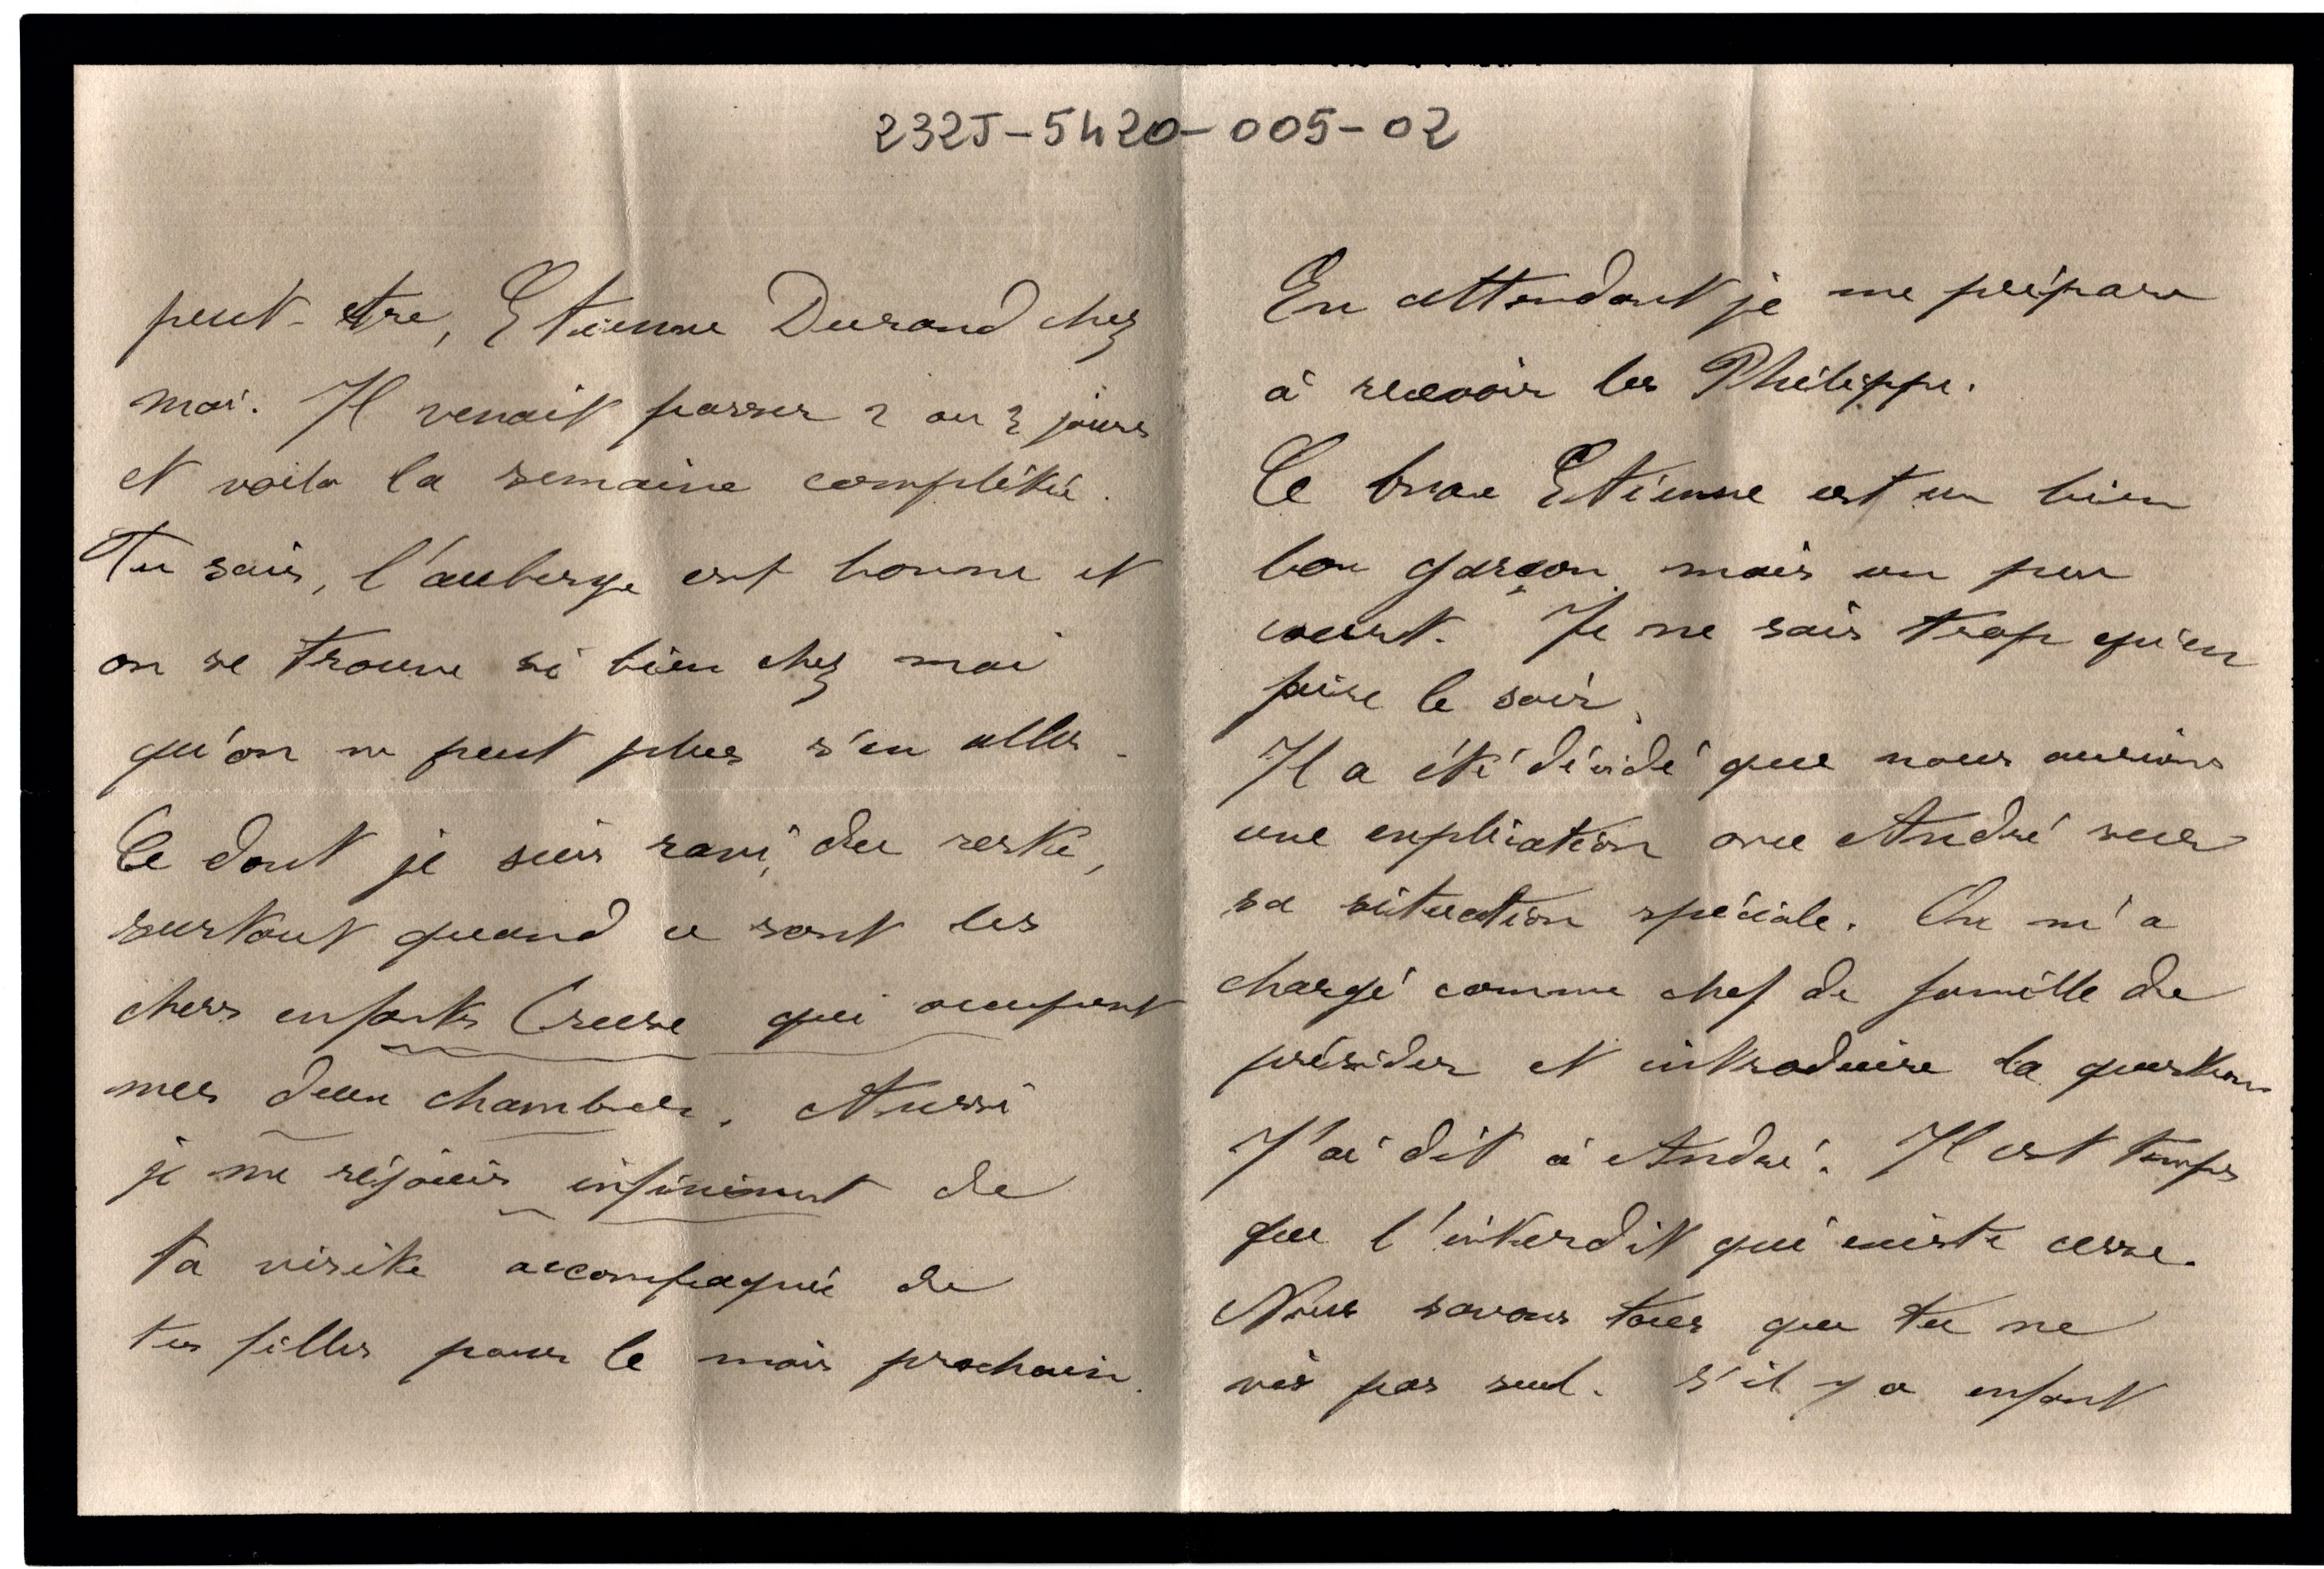 232J-5420-005-02
peut-etre, Etienne Durand chez
moi. Il venait passer 2 ou 3 jours
et voila la semaine complétée.
Tu sais, l'auberge est bonne et
on se trouve si bien chez moi
qu'on ne peut plus s'en aller.
Ce dont je suis ravi, du reste,
surtout quand ce sont les
chers enfants Creuse qui occupent
mes deux chambres. Aussi
je me réjouis infiniment de
ta visite accompagnée de
tes filles pour le mois prochain.
En attendant je me prépare
à recevoir les Philippe.
Ce brave Etienne est un bien
bon garçon, mais un peu
court. Je ne sais trop qu'en
faire le soir.
Il a été décidé que nous aurions
une explication avec André sur
sa situation spéciale. On m'a
chargé comme chef de famille de
présider et introduire la question
J'ai dit à André. Il est temps
que l'interdit qui existe cesse.
Nous savons tous que tu ne
vis pas seul. S'il y a enfant